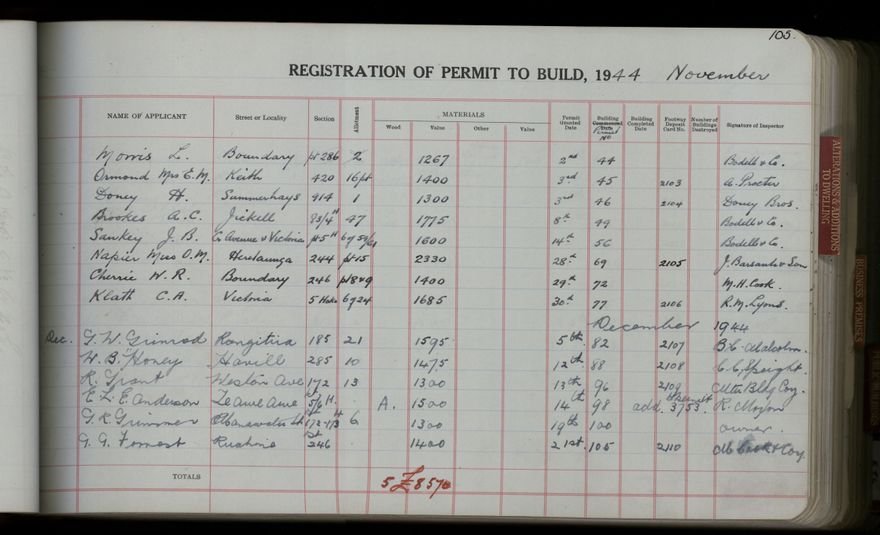 105.
REGISTRATION OF PERMIT TO BUILD, 1944 November
NAME OF APPLICANT Street or Locality Section Allotment MATERIALS Wood Value Other Value Permit Granted Date Building Commenced Date Permit No Building Completed Date Footway Deposit Card No. Number of Buildings Destroyed Signature of Inspector
Morris L. Boundary pt 286 2 1267 2nd 44 Bodell & Co.
Ormond Mrs E. M. Keith 420 16pt 1400 3rd 45 2103 A. Procter
Doney H. Summerhays 414 1 1300 3rd 46 2104 Doney Bros.
Brookes A. C. Jickell 83/4 47 1775 8th 49 Bodell & Co.
Sankey J. B. Cr Avenue & Victoria pt 5 H 6 of 59/61 1600 14th 56 Bodell & Co.
Napier Miss O. M. Heretaunga 244 pt 15 2330 28th 69 2105 J. Barsanti & Son
Cherrie W. R. Boundary 246 pt 8&9 1400 29th 72 M. H. Cook.
Klath C. A. Victoria 6 of 24 1685 30th 77 2106 R. M. Lyons.
December 1944
Dec. G. W. Grinrod Rangitira 185 21 1595 5th 82 2107
W. B. Honey Havill 285 10 1475 12th 88 2108 C. C. Speight.
R. Grant Weston Ave 172 13 1300 13th 96 2109 Bldg Coy.
E. L. E Anderson Te Awe Awe A. 1500 14th 98 add. 3753. R.
G. R. Grimmer 172-173 6 1300 19th 100 owner.
G. G. Forrest Ruahine 246 1400 21st 105 2110
TOTALS 5 £8570
ALTERATIONS & ADDITIONS TO DWELLING
BUSINESS PREMISES